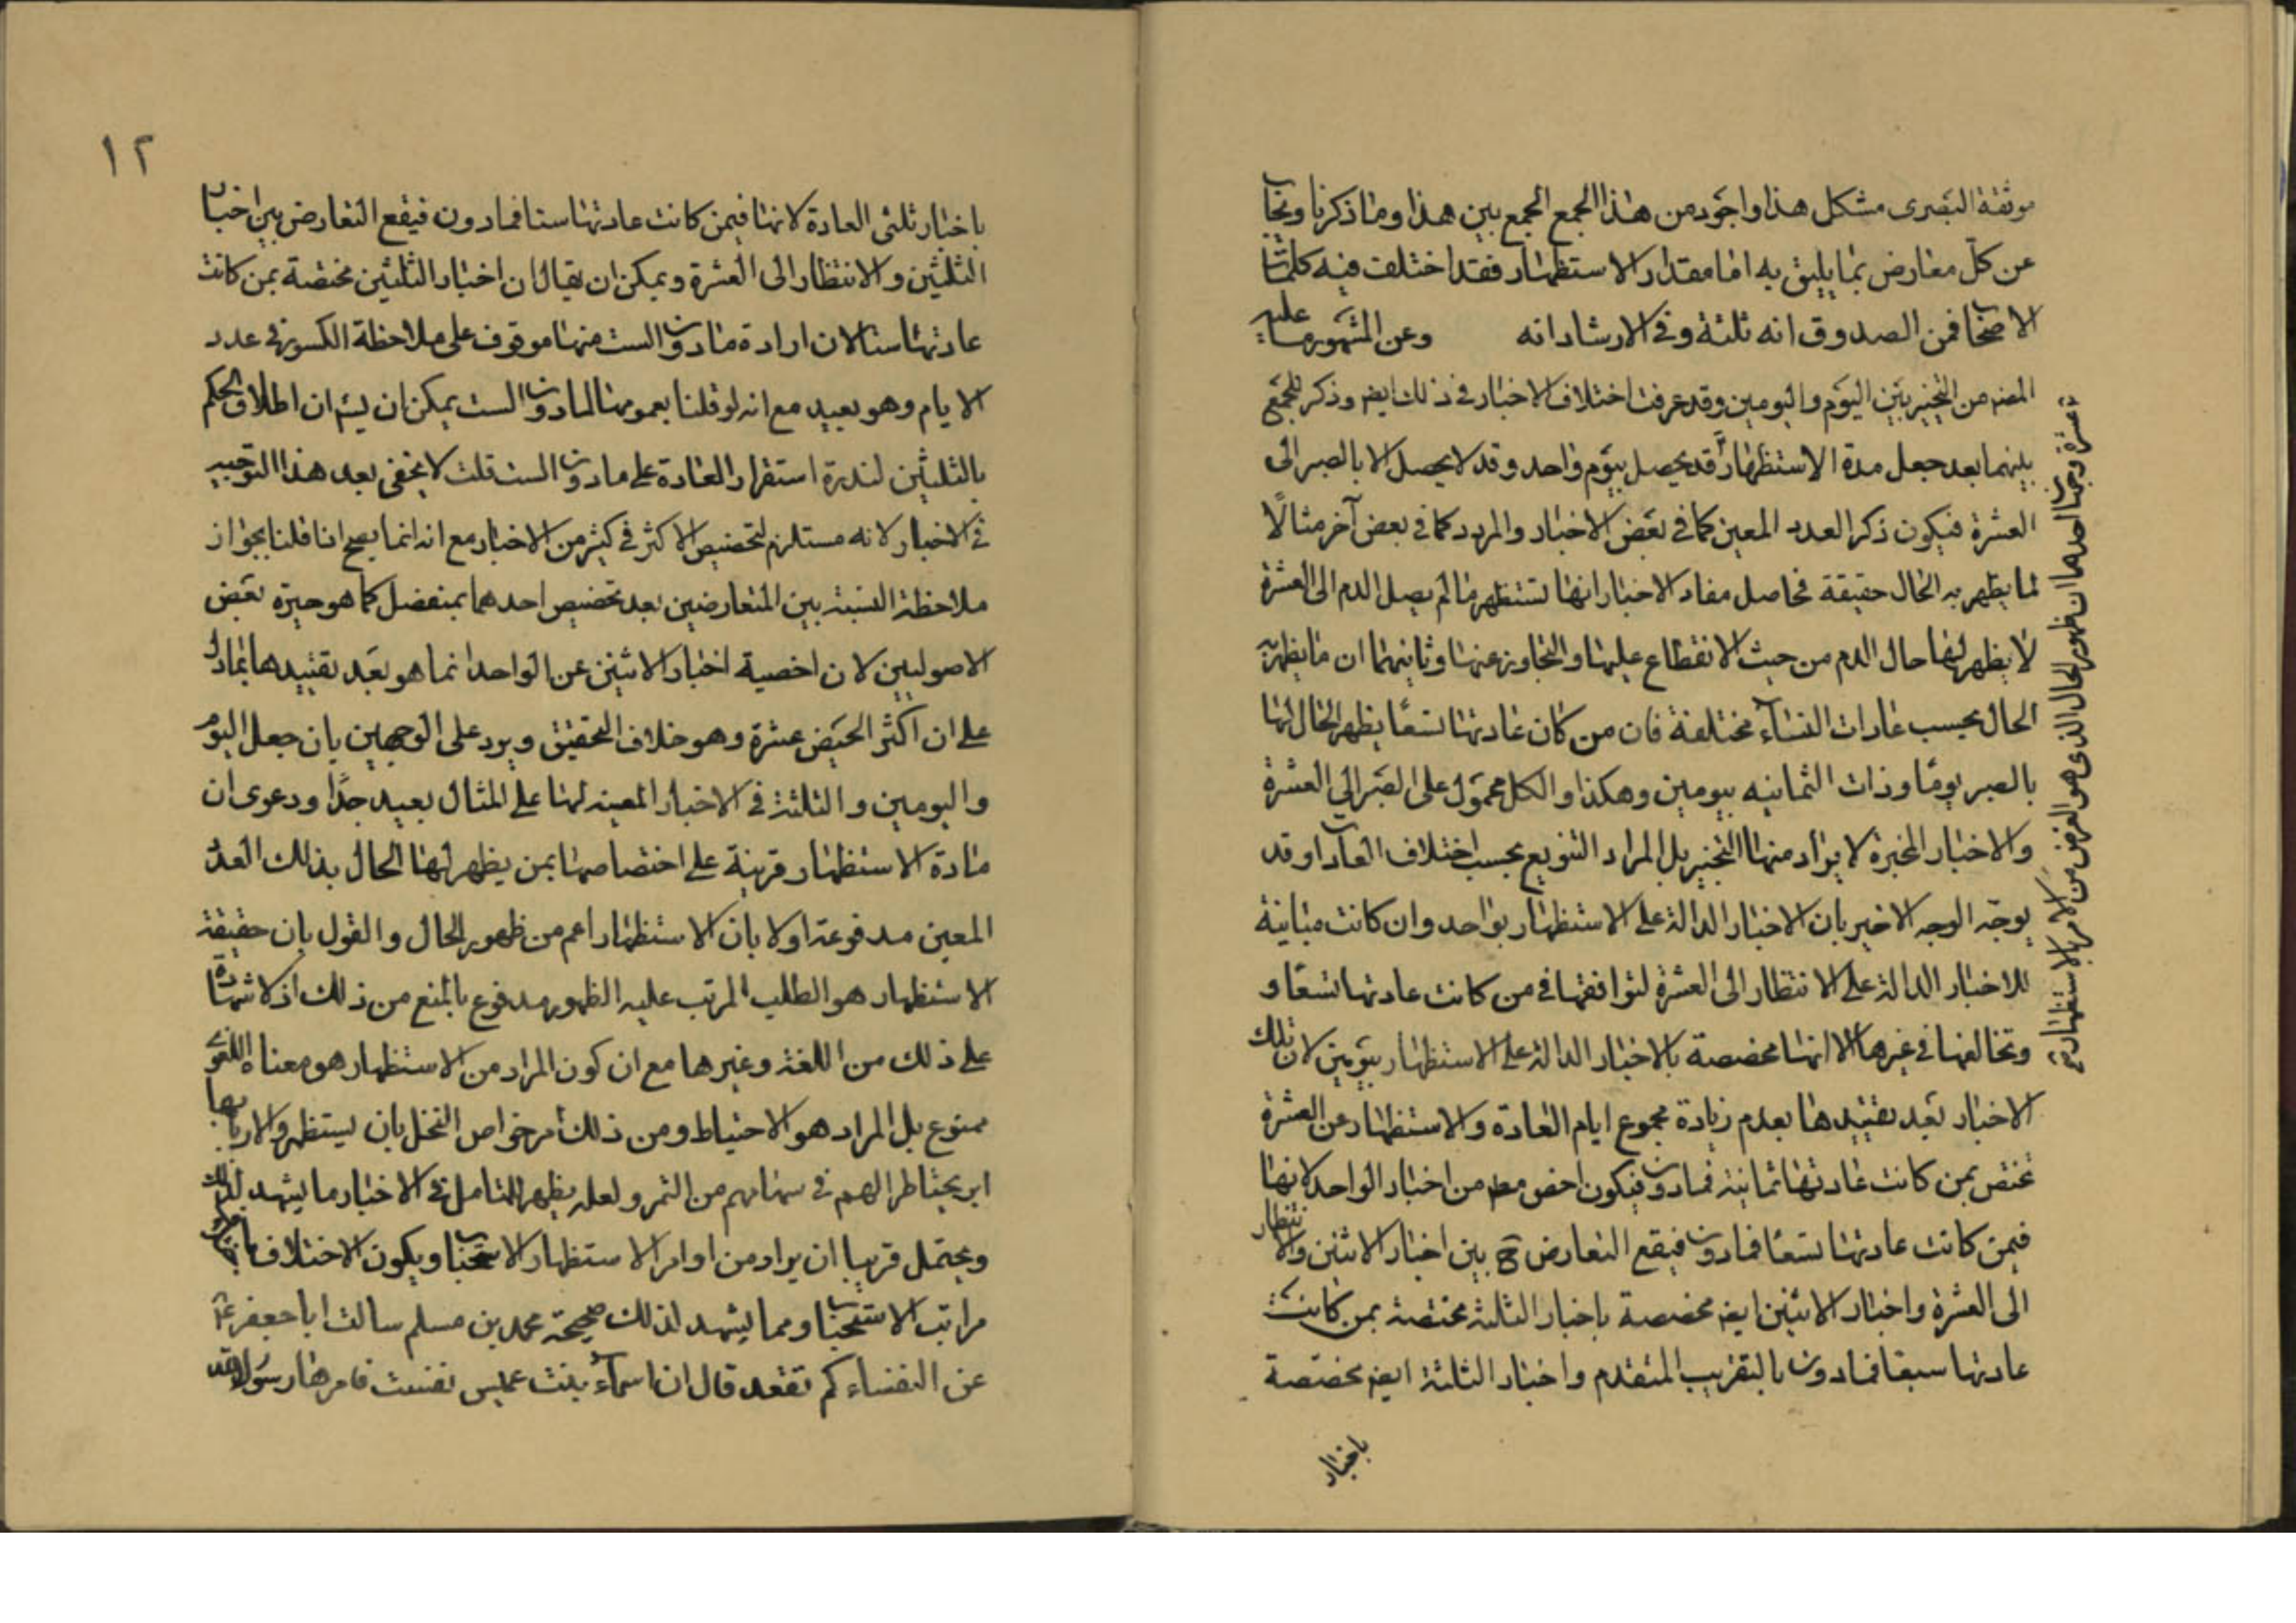 موثقة البصرى مشكل هذا واجود من هذا الجمع الجمع بين هذا وما ذكرنا ونجاب
عن كل معارض بما يليق به اما مقدار الاستظهار فقد اختلف فيه كلمات
الاصحاب فمن الصدوق انه ثلثة وفى الارشاد انه وعن المشهور ما عليه
المصنف من التخيير بين اليوم واليومين وقد عرفت اختلاف الاخبار فى ذلك ايض وذكر للجمع
بينهما بعد جعل مدة الاستظهار قد يحصل بيوم واحد وقد لا يحصل الا بالصبر الى
العشرة فيكون ذكر العدد المعين كما فى بعض الاخبار والمردد كما فى بعض آخر مثالا
لما يظهر به الحال حقيقة فحاصل مفاد الاخبار انها تستظهر ما لم يصل الدم الى العشرة
لا يظهر لها حال الدم من حيث الانقطاع عليها والتجاوز عنها وثانيهما ان ما يظهر به
الحال بحسب عادات النساء مختلفة فان من كان عادتها تسعا يظهر الحال لها
بالصبر يوما وذات الثمانيه بيومين وهكذا والكل محمول على الصبر الى العشرة
والاخبار المخيرة لا يراد منها التخيير بل المراد التنويع بحسب اختلاف العادات وقد
يوجه الوجه الاخير بان الاخبار الدالة على الاستظهار بواحد وان كانت مباينة
للاخبار الدالة على الانتظار الى العشرة لتوافقها فى من كانت عادتها تسعا و
وتخالفها فى غيرها الا انها مخصصة بالاخبار الدالة على الاستظهار بيومين لان تلك
الاخبار بعد تقييدها بعدم زيادة مجموع ايام العادة والاستظهار عن العشرة
تختص بمن كانت عادتها ثمانية فما دون فيكون اخص مط من اخبار الواحد لانها
فيمن كانت عادتها تسعا فما دون فيقع التعارض ح بين اخبار الاثنين والانتظار
الى العشرة واخبار الاثنين ايض مخصصة باخبار الثلثة مختصة بمن كانت
عادتها سبعا فما دون بالتقريب المتقدم واخبار الثلثة ايض مخصصة
باخبار
عشرة وجهان احدهما ان ظهور الحال الذى هو الغرض من الامر بالاستظهار
١٢
باخبار ثلثى العادة لانها فيمن كانت عادتها ستا فما دون فيقع التعارض بين اخبار
الثلثين والانتظار الى العشرة ويمكن ان يقال ان اخبار الثلثين مختصة بمن كانت
عادتها ستا لان ارادة ما دون الست منها موقوف على ملاحظة الكسور فى عدد
الايام وهو بعيد مع انه لو قلنا بعمومها لما دون الست يمكن ان يقال ان اطلاق الحكم
بالثلثين لندرة استقرار العادة على ما دون الست قلت لا يخفى بعد هذا التوجيه
فى الاخبار لانه مستلزم لتخصيص الاكثر فى كثير من الاخبار مع انه انما يصح اذا قلنا بجواز
ملاحظة النسبة بين المتعارضين بعد تخصيص احدهما بمنفصل كما هو حيرة بعض
الاصوليين لان اخصية اخبار الاثنين عن الواحد انما هو بعد تقييدها بما دل
على ان اكثر الحيض عشرة وهو خلاف التحقيق ويرد على الوجهين بان جعل اليوم
واليومين والثلثة فى الاخبار المعينه لها على المثال بعيد جدا ودعوى ان
مادة الاستظهار قرينة على اختصاصها بمن يظهر لها الحال بذلك العدد
المعين مدفوعة اولا بان الاستظهار اعم من ظهور الحال والقول بان حقيقة
الاستظهار هو الطلب المرتب عليه الظهور مدفوع بالمنع من ذلك اذ لا شهادة
على ذلك من اللغة وغيرها مع ان كون المراد من الاستظهار هو معناه اللغوى
ممنوع بل المراد هو الاحتياط ومن ذلك امر خواص النخل بان يستظهروا لاربابها
اى يحتاطر الهم فى سهامهم من الثمر ولعله يظهر للتامل فى الاخبار ما يشهد لذلك
ويحتمل قريبا ان يراد من اوامر الاستظهار الاستحباب ويكون الاختلاف باختلاف
مراتب الاستحباب ومما يشهد لذلك صحيحة محمد بن مسلم سالت ابا جعفر ع
عن النفساء كم تقعد قال ان اسماء بنت عميس نفست فامرها رسول الله